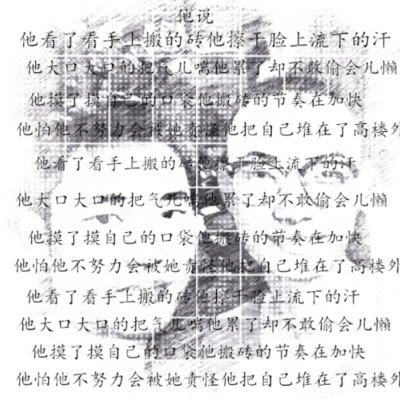 他说
他看了看手上搬的砖他擦干脸上流下的汗
他大口大口的把气儿喘他累了却不敢偷会儿懒
他摸了摸自己的口袋他搬砖的节奏在加快
他怕他不努力会被她责怪他把自己堆在了高楼外
他看了看手上搬的砖他擦干脸上流下的汗
他大口大口的把气儿喘他累了却不敢偷会儿懒
他摸了摸自己的口袋他搬砖的节奏在加快
他怕他不努力会被她责怪他把自己堆在了高楼外
他看了看手上搬的砖他擦干脸上流下的汗
他大口大口的把气儿喘他累了却不敢偷会儿懒
他摸了摸自己的口袋他搬砖的节奏在加快
他怕他不努力会被她责怪他把自己堆在了高楼外